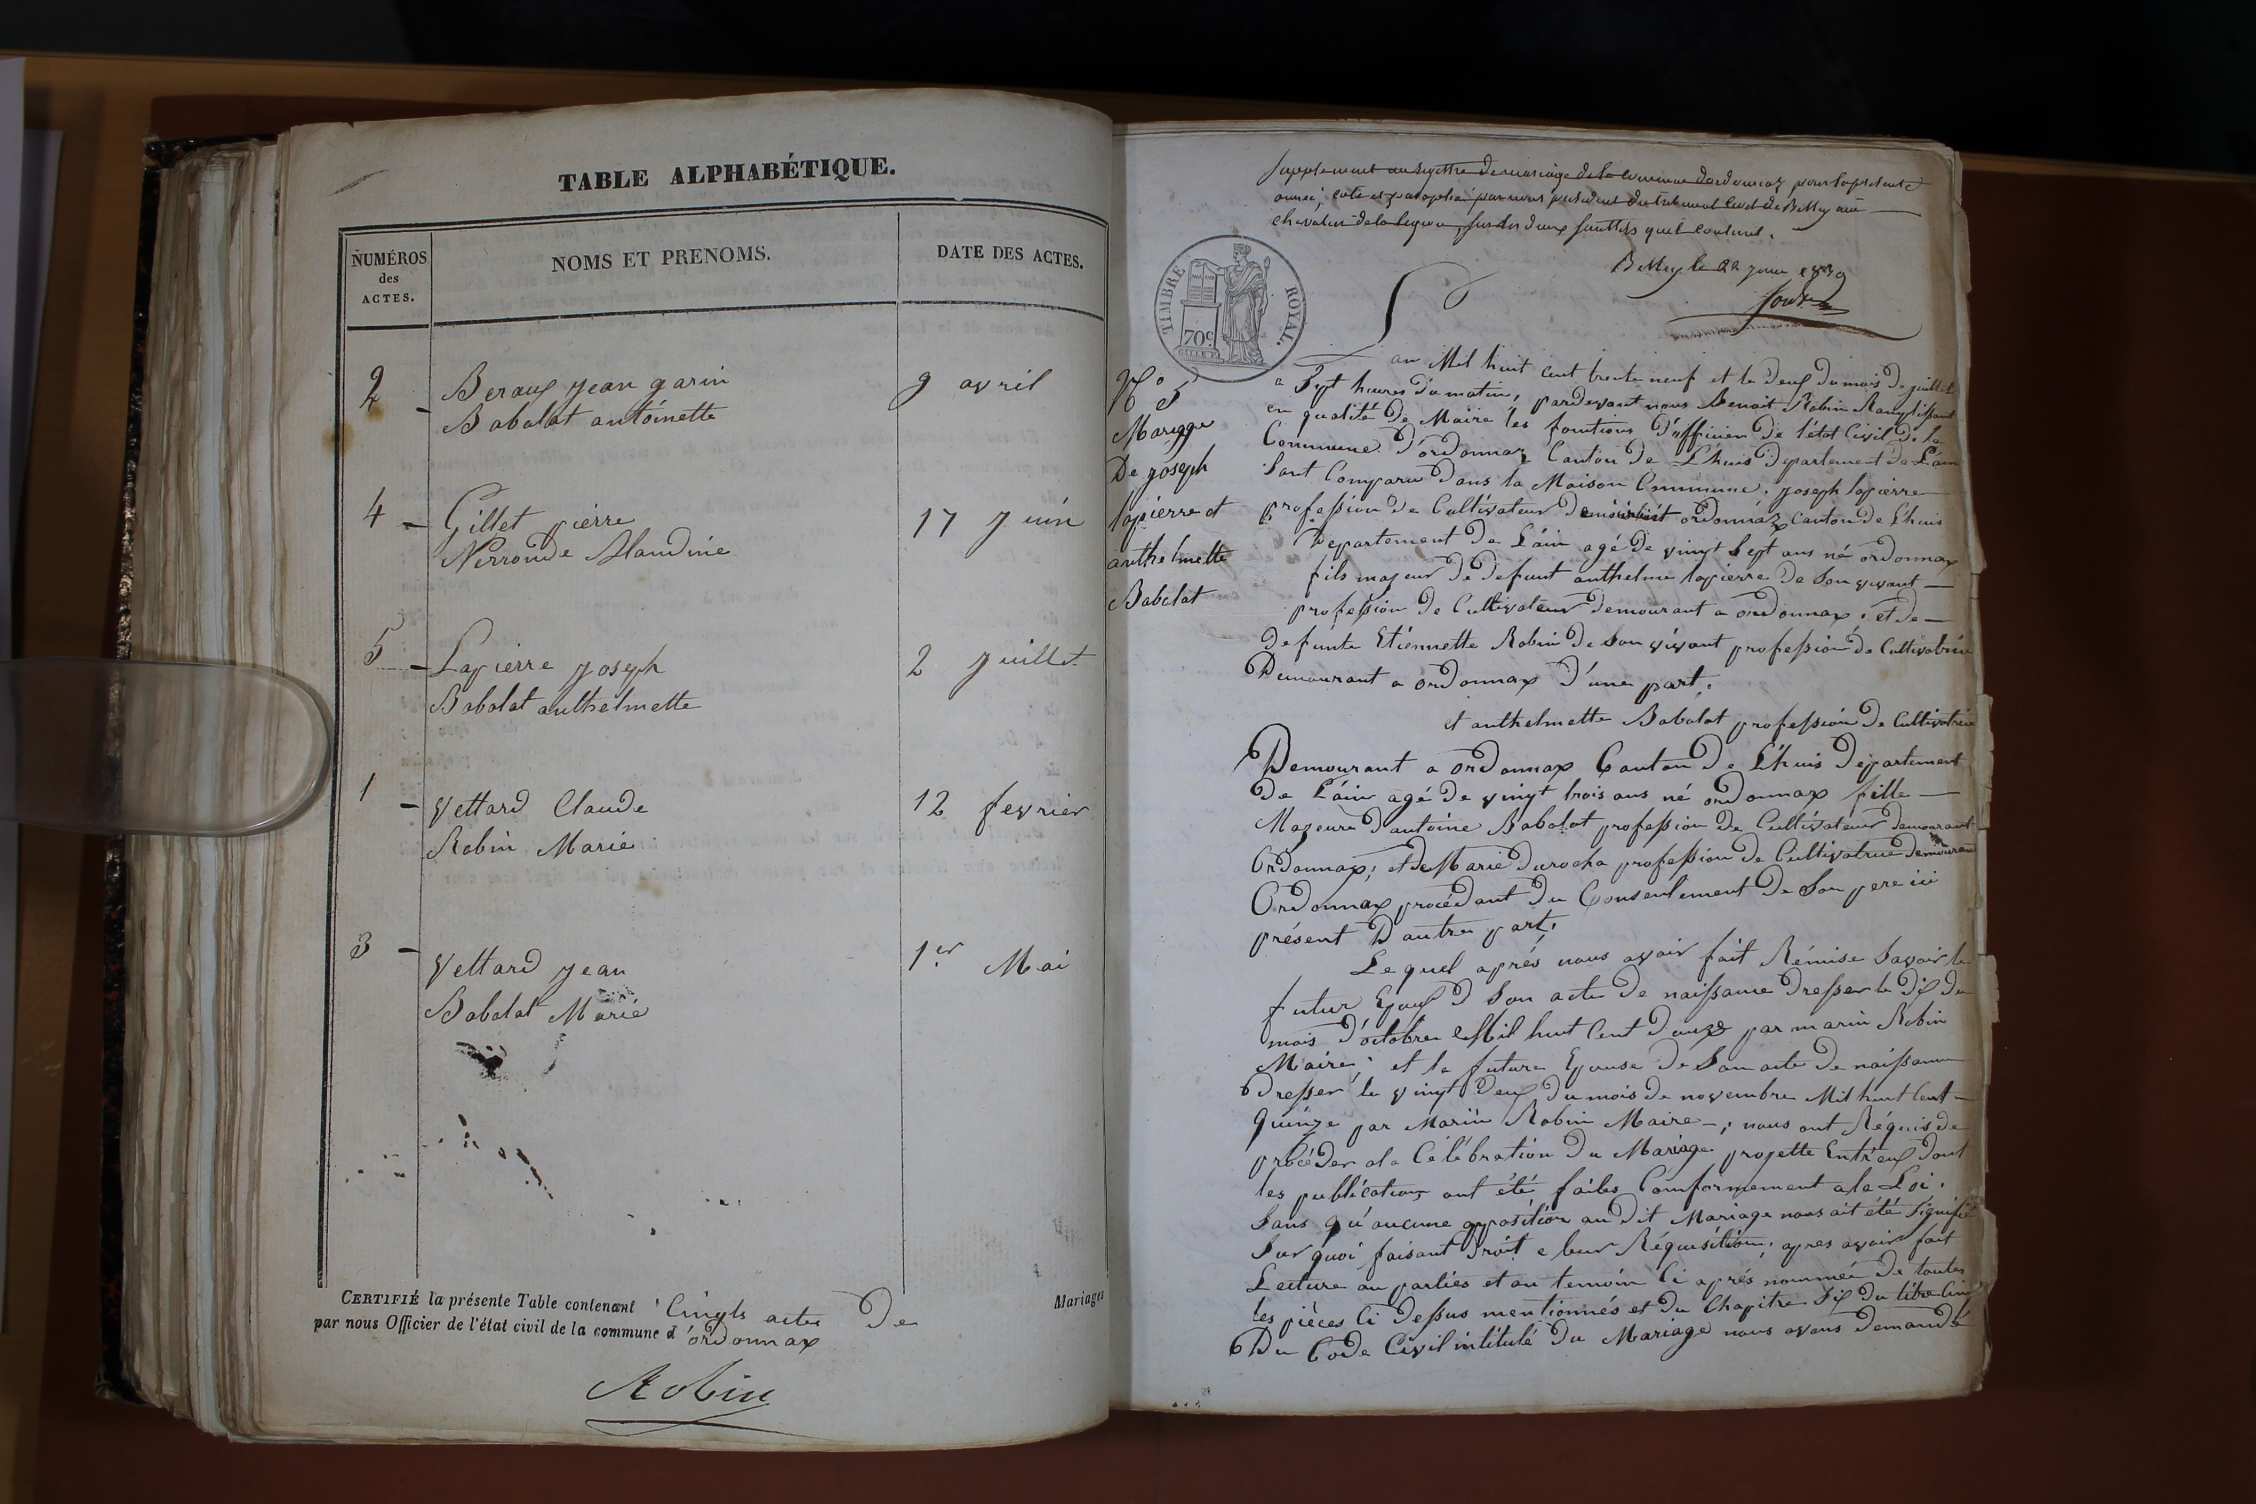 TABLE ALPHABÉTIQUE.
NUMÉROS des ACTES.
NOMS ET PRENOMS.
DATE DES ACTES.
2 - Beraux jean garin 9 avril
Babolat antoinette
4 - Gillet pierre 17 juin
Nerroude Claudine
5 - Lapierre joseph 2 juillet
Babolat anthelmette
1 - Vettard Claude 12 fevrier
Robin Marie
3 - Vettard jean 1er Mai
Babolat Marie
CERTIFIÉ la présente Table contenant Cinqts actes De Mariages
par nous Officier de l'état civil de la commune d'ordonnax
Robin
Supplement au registre de mariage de la commune d'ordonnaz pour la presente
année, coté et paraphé par nous président du tribunal civil de Belley
chevalier de la legion, sur les deux feuillets qu'il contient.
Belley le 22 juin 1839
TIMBRE ROYAL.
70c
N° 5
Mariage
De joseph
lapierre et
anthelmette
Babolat
an Mil huit cent trente neuf et le Deux du mois de juillet
a Sept heures du matin, pardevant nous Benoit Robin Remplissant
en qualité De Maire les fonctions D'officier De l'état Civil De la
Commune D'ordonnaz Canton De L'huis Departement De L'ain
Sont Comparu Dans la Maison Commune, joseph lapierre
profession De Cultivateur ordonnaz canton de L'huis
Departement De L'ain agé De vingt Sept ans né ordonnax
fils majeur De Defunt anthelme lapierre De Son vivant
profession De Cultivateur Demourant a ordonnax, et de
Defunte Etiennette Robin De Son vivant profession de Cultivatrice
Demourant a ordonnax D'une part.
et anthelmette Babolat profession De Cultivatrice
Demourant a ordonnax Canton De L'huis Departement
De L'ain agé De vingt trois ans né ordonnax fille
Majeure D'antoine Babolat profession De Cultivateur demourant
Ordonnax; et De Marie Durocha profession De Cultivatrice demourant
Ordonnax procédant Du Consentement De Son pere ici
présent D autre part.
Lequel aprés nous avoir fait Rémise Savoir le
futur Epoux D Son acte De naissance Dresser le Dix du
mois D'octobre Mil huit Cent Douze par marin Robin
Maire; et la future Epouse De Son acte De naissance
Dresser le vingt Deux Du mois De novembre Mil huit Cent
Quinze par Marin Robin Maire -; nous ont Réquis de
procéder a la Célébration Du Mariage projette Entr'eux Dont
les publications ont été faites Conformement a la Loi.
Sans qu'aucune opposition au Dit Mariage nous ait été Signifié
Sur quoi faisant Droit a leur Réquisition; apres avoir fait
Lecture au parties et au temoin Ci aprés nommée De toutes
les pièces Ci Dessus mentionnés et du Chapitre Six Du titre Cinq
Du Code Civil intitulé Du Mariage nous avons Demandé